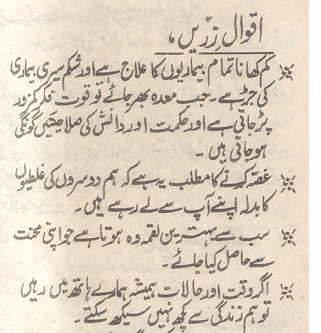 اقوال زریں،
کم کھانا تمام بیماریوں کا علاج ہے اور شکم سیری بیماری
کی جڑ ہے۔ جب معدہ بھر جائے تو قوت فکر کمزور
پڑ جاتی ہے اور حکمت اور دانش کی صلاحتیں گونگی
ہو جاتی ہیں۔
غصہ کرنے کا مطلب یہ ہے کہ ہم دوسروں کی غلطیوں
کا بدلہ اپنے آپ سے لے رہے ہیں۔
سب سے بہترین لقمہ وہ ہوتا ہے جو اپنی محنت
سے حاصل کیا جائے۔
اگر وقت اور حالات ہمیشہ ہمارے ہاتھ میں رہیں
تو ہم زندگی سے کچھ نہیں سیکھ سکتے۔